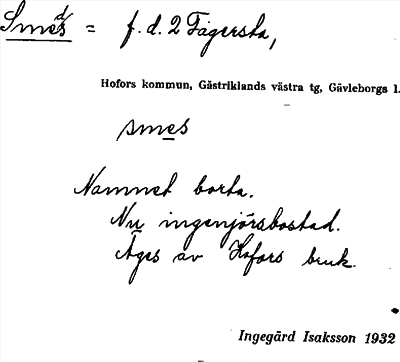 Smeds = f. d. 2 Fagersta,
Hofors kommun, Gästriklands västra tg, Gävleborgs l.
smes
Namnet borta.
Nu ingenjörsbostad.
Äges av Hofors bruk.
Ingegärd Isaksson 1932